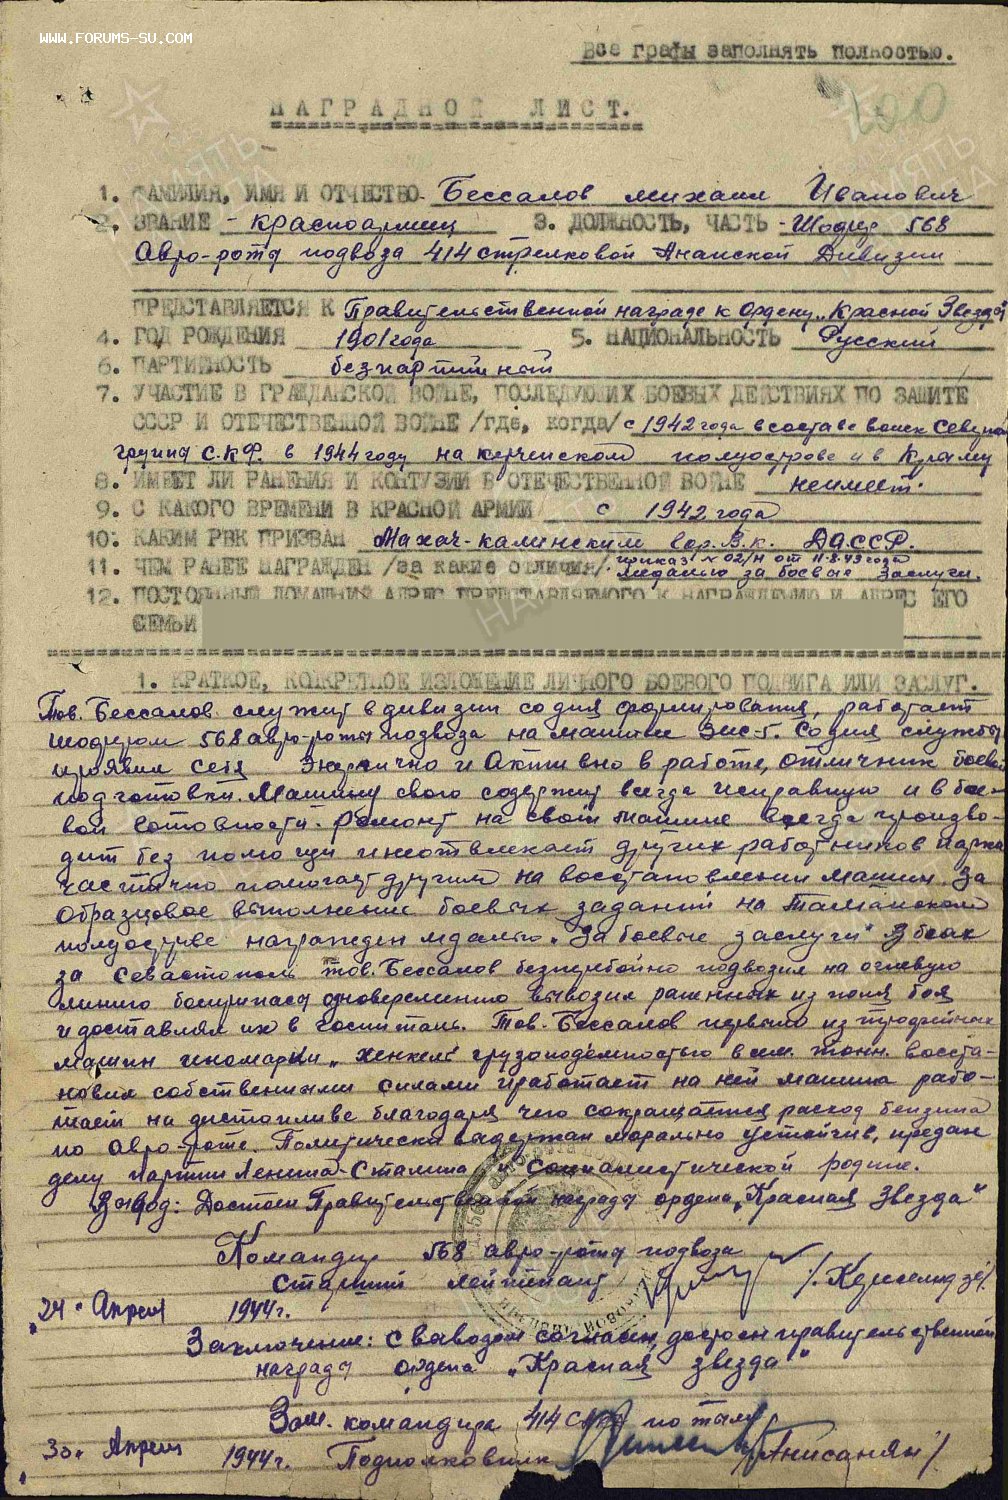 WWW.FORUMS-SU.COM
Все графы заполнять полностью.
НАГРАДНОЙ ЛИСТ.
1. ФАМИЛИЯ, ИМЯ И ОТЧЕСТВО Бессалов михаил Иванович
2. ЗВАНИЕ - красноармеец 3. ДОЛЖНОСТЬ, ЧАСТЬ - Шофер 568
Авто-рота подвоза 414 стрелковой Анапской Дивизии
ПРЕДСТАВЛЯЕТСЯ К Правительственной награде к ордену „Красной Звезды
4. ГОД РОЖДЕНИЯ 1901 года 5. НАЦИОНАЛЬНОСТЬ Русский
6. ПАРТИЙНОСТЬ безпартийный
7. УЧАСТИЕ В ГРАЖДАНСКОЙ ВОЙНЕ, ПОСЛЕДУЮЩИХ БОЕВЫХ ДЕЙСТВИЯХ ПО ЗАЩИТЕ
СССР И ОТЕЧЕСТВЕННОЙ ВОЙНЕ /где, когда/ с 1942 года в составе войск Северной
группы С.К.Ф. в 1944 году на керченском полуострове и в Крыму
8. ИМЕЕТ ЛИ РАНЕНИЯ И КОНТУЗИИ В ОТЕЧЕСТВЕННОЙ ВОЙНЕ неимеет.
9. С КАКОГО ВРЕМЕНИ В КРАСНОЙ АРМИИ с 1942 года
10. КАКИМ РВК ПРИЗВАН Махач-калинским Гор.В.к. ДАССР.
приказ № 02/н от 11.8.43 года
11. ЧЕМ РАНЕЕ НАГРАЖДЕН /за какие отличия/. медалью за боевые заслуги.
12. ПОСТОЯННЫЙ ДОМАШНИЙ АДРЕС ПРЕДСТАВЛЯЕМОГО К НАГРАЖДЕНИЮ И АДРЕС ЕГО
СЕМЬИ
1. КРАТКОЕ, КОНКРЕТНОЕ ИЗЛОЖЕНИЕ ЛИЧНОГО БОЕВОГО ПОДВИГА ИЛИ ЗАСЛУГ.
Тов. Бессалов служит в дивизии со дня формирования, работает
шофером 568 авто-роты подвоза на машине Зис-5. Со дня службы
проявил себя Энергично и Активно в работе, отличник боевой
подготовки. Машину свою содержит всегда исправную и в бое-
вой готовности. Ремонт на свой машине всегда произво-
дит без помощи и неотвлекает других работников парка
частично помогает другим на восстановлении машин. За
Образцовое выполнение боевых заданий на Таманском
полуострве награжден медалью „За боевые заслуги" В боях
за Севастополь тов. Бессалов безперебойно подвозил на огневую
линию боеприпасы одновременно вывозил раненных из поля боя
и доставлял их в госпиталь. Тов. Бессалов первым из трофейных
машин иномарки „хенкель" грузоподъемностью 8 тонн. восста-
новил собственными силами и работает на ней машина рабо-
тает на дистопливе благодаря чего сокращается расход бензина
по авто-роте. Политически выдержан морально устойчив, предан
делу партии Ленина-Сталина и социалистической родине.
Вывод: Достоин Правительственной награды ордена „Красная Звезда"
Командир 568 авто-роты подвоза
старший лейтенант
24. Апреля 1944 г.
Заключение: с выводом согласен, достоен правительственной
награды ордена „Красная звезда"
Зам. командира 414 по тылу
30. Апреля 1944 г. Подполковник /Анисанян/